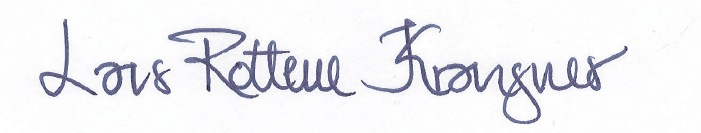 Lars Rottem Krangnes